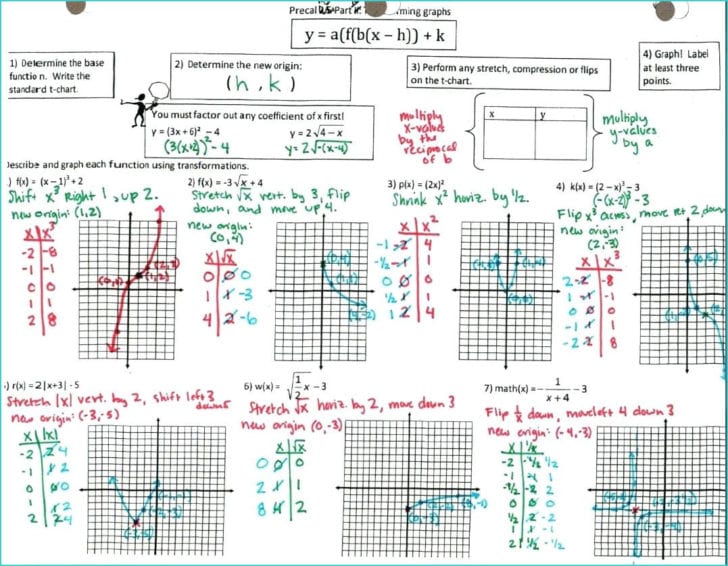 Precal 2.5 Part
ming graphs
y = a(f(b(x – h)) + k
1) Determine the base
functio n. Write the
standard t-chart.
2) Determine the new origin:
(h, k)
3) Perform any stretch, compression or flips
on the t-chart.
4) Graph! Label
at least three
points.
You must factor out any coefficient of x first!
y = (3x + 6)² – 4
y = 2√4 – x
y = 2√-(x-4)
multiply
x-values
by the
reciprocal
of b
x y
multiply
y-values
by a
Describe and graph each function using transformations.
.) f(x) = (x – 1)³ + 2
Shift x³ Right 1, up 2.
new origin: (1,2)
x x³
-2 -8
-1 -1
0 0
1 1
2 8
2) f(x) = -3√x + 4
Stretch √x vert. by 3, flip
down, and move up 4.
new origin:
(0,4)
x √x
0 0 0
1 1 -3
4 2 -6
(0,4)
(1,1)
(4,-2)
3) p(x) = (2x)²
Shrink x² horiz. by ½.
x x²
-1 -2 4
-½ -1 1
0 0 0
½ 1 1
1 2 4
(0,0)
4) k(x) = (2 – x)³ – 3
(-(x-2))³ -3
Flip x³ across, move rt 2, down
new origin:
(2,-3)
x x³
2 -2 -8
1 -1 -1
0 0 0
-1 1 1
-2 2 8
(0,5)
.) r(x) = 2|x+3| - 5
Stretch |x| vert. by 2, shift left 3
down 5
new origin: (-3,-5)
x |x|
-2 2 4
-1 1 2
0 0 0
1 1 2
2 2 4
(-3,-5)
6) w(x) = √1/2 x – 3
Stretch √x horiz. by 2, move down 3
new origin (0,-3)
x √x
0 0 0
2 1 1
8 4 2
(0,-3)
7) math(x) = – 1/x + 4 – 3
Flip 1/x down, move left 4 down 3
new origin: (-4,-3)
x 1/x
-2 -½ ½
-1 -1 1
-½ -2 2
0 0 0
½ 2 -2
1 1 -1
2 ½ -½